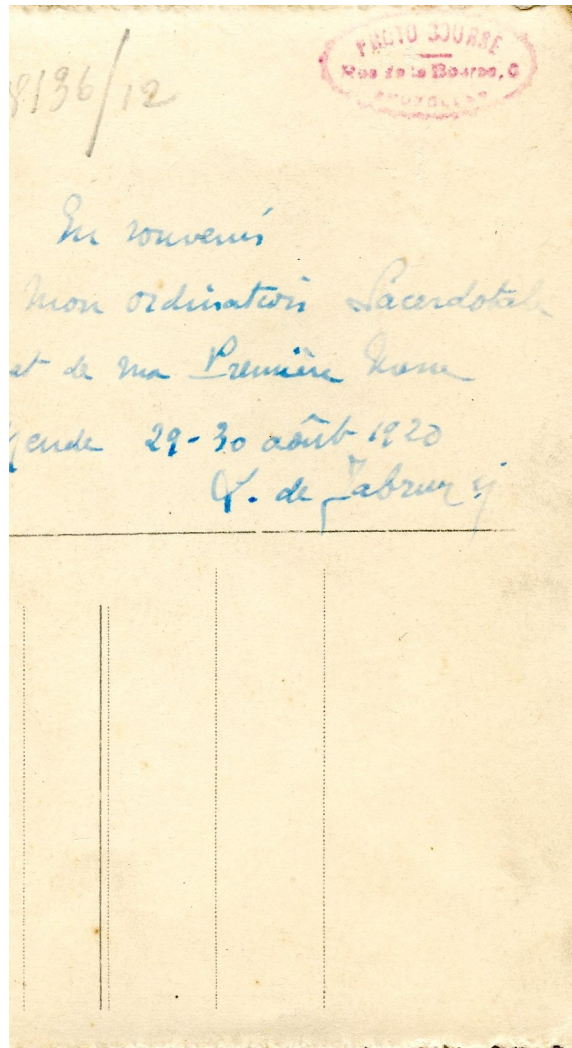 8136/12
PHOTO BOURSE
Rue de la Bourse, 6
BRUXELLES
En souvenir
mon ordination Sacerdotale
et de ma Première Messe
29-30 août 1920
de